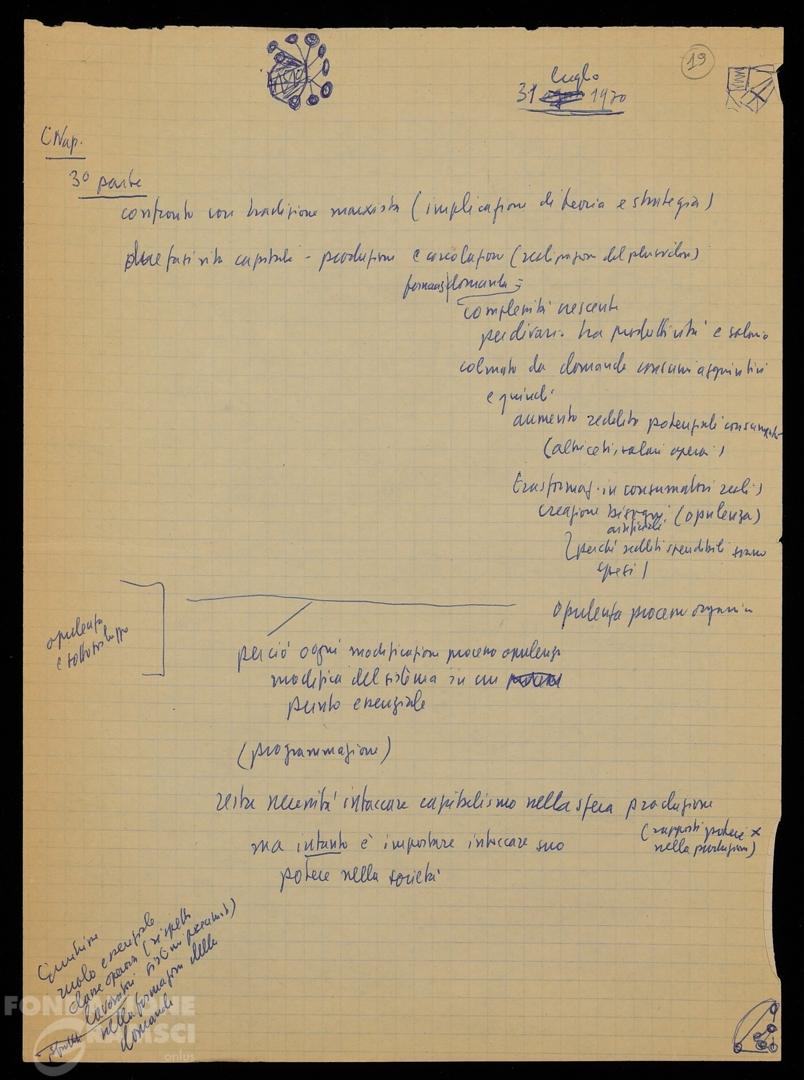 19
luglio
31 1970
CNap.
3° parte
confronto con tradizione marxista (implicazione di teoria e strategia)
due fasi vita capitale - produzione e circolazione (realizzazione del plusvalore)
formaz domanda =
complessità crescente
per divario tra produttività e salario
colmato da domanda consumi aggiuntivi
e quindi
aumento reddito potenziali consumatori
(altri ceti, salari operai)
trasformaz. in consumatori reali
creazione bisogni (opulenza)
artificiali
perché redditi spendibili siano
spesi)
opulenza processo organico
opulenza
e sottosviluppo
perciò ogni modificazione processo opulenza
modifica del sistema in un
punto essenziale
(programmazione)
resta necessità intaccare capitalismo nella sfera produzione
(rapporti potere x
nella produzione)
ma intanto è importare intaccare suo
potere nella società
ruolo essenziale
classe operaia (rispetto
lavoratori sistemi precedenti)
nella formazione della
domanda
FONDAZIONE
GRAMSCI
onlus